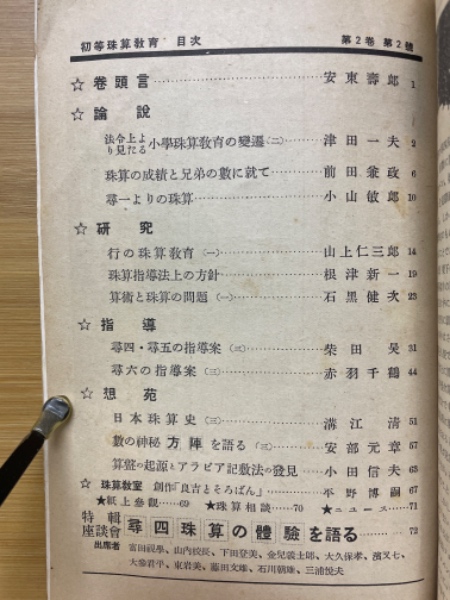 初等珠算敎育 目次 第2卷 第2號
☆ 卷頭言 安東壽郎 1
☆ 論說
法令上より見たる小學珠算敎育の變遷(二) 津田一夫 2
珠算の成績と兄弟の數に就て 前田兼政 6
尋一よりの珠算 小山敏郎 10
☆ 硏究
行の珠算敎育(一) 山上仁三郎 14
珠算指導法上の方針 根津新一 19
算術と珠算の問題(一) 石黑健次 23
☆ 指導
尋四・尋五の指導案(三) 柴田 31
尋六の指導案(三) 赤羽千鶴 44
☆ 想苑
日本珠算史(三) 溝江淸 51
數の神秘方陣を語る(三) 安部元章 57
算盤の起源とアラビア記數法の發見 小田信夫 63
☆ 珠算敎室 創作「良吉とそろばん」 平野博 67
★紙上參觀……69 ★珠算相談……70 ★ニュース……71
特輯座談會 尋四珠算の體驗を語る 72
出席者 富田視學、山內校長、下田登美、金兒義士郎、大久保孝、濱又七、
大參君平、東岩美、藤田文雄、石川朝雄、三浦悅夫